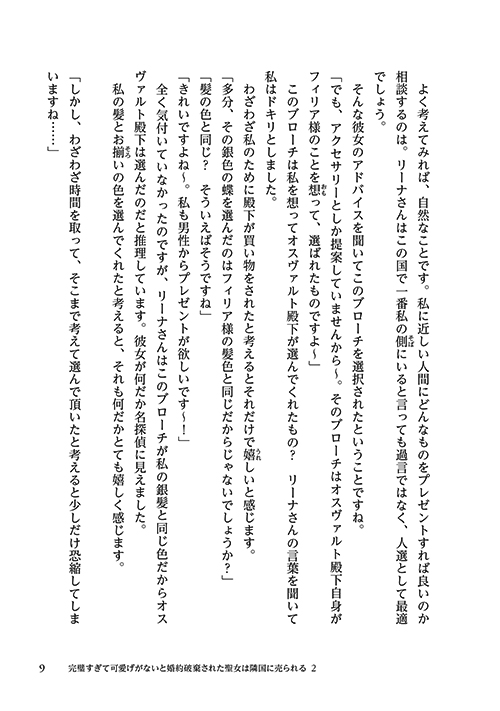 よく考えてみれば、自然なことです。私に近しい人間にどんなものをプレゼントすれば良いのか
相談するのは。リーナさんはこの国で一番私の側にいると言っても過言ではなく、人選として最適
でしょう。
そんな彼女のアドバイスを聞いてこのブローチを選択されたということですね。
「でも、アクセサリーとしか提案していませんから〜。そのブローチはオスヴァルト殿下自身が
フィリア様のことを想って、選ばれたものですよ〜」
このブローチは私を想ってオスヴァルト殿下が選んでくれたもの？　リーナさんの言葉を聞いて
私はドキリとしました。
わざわざ私のために殿下が買い物をされたと考えるとそれだけで嬉しいと感じます。
「多分、その銀色の蝶を選んだのはフィリア様の髪色と同じだからじゃないでしょうか？」
「髪の色と同じ？　そういえばそうですね」
「きれいですよね〜。私も男性からプレゼントが欲しいです〜！」
全く気付いていなかったのですが、リーナさんはこのブローチが私の銀髪と同じ色だからオス
ヴァルト殿下は選んだのだと推理しています。彼女が何だか名探偵に見えました。
私の髪とお揃いの色を選んでくれたと考えると、それも何だかとても嬉しく感じます。
「しかし、わざわざ時間を取って、そこまで考えて選んで頂いたと考えると少しだけ恐縮してしま
いますね……」
9 完璧すぎて可愛げがないと婚約破棄された聖女は隣国に売られる 2